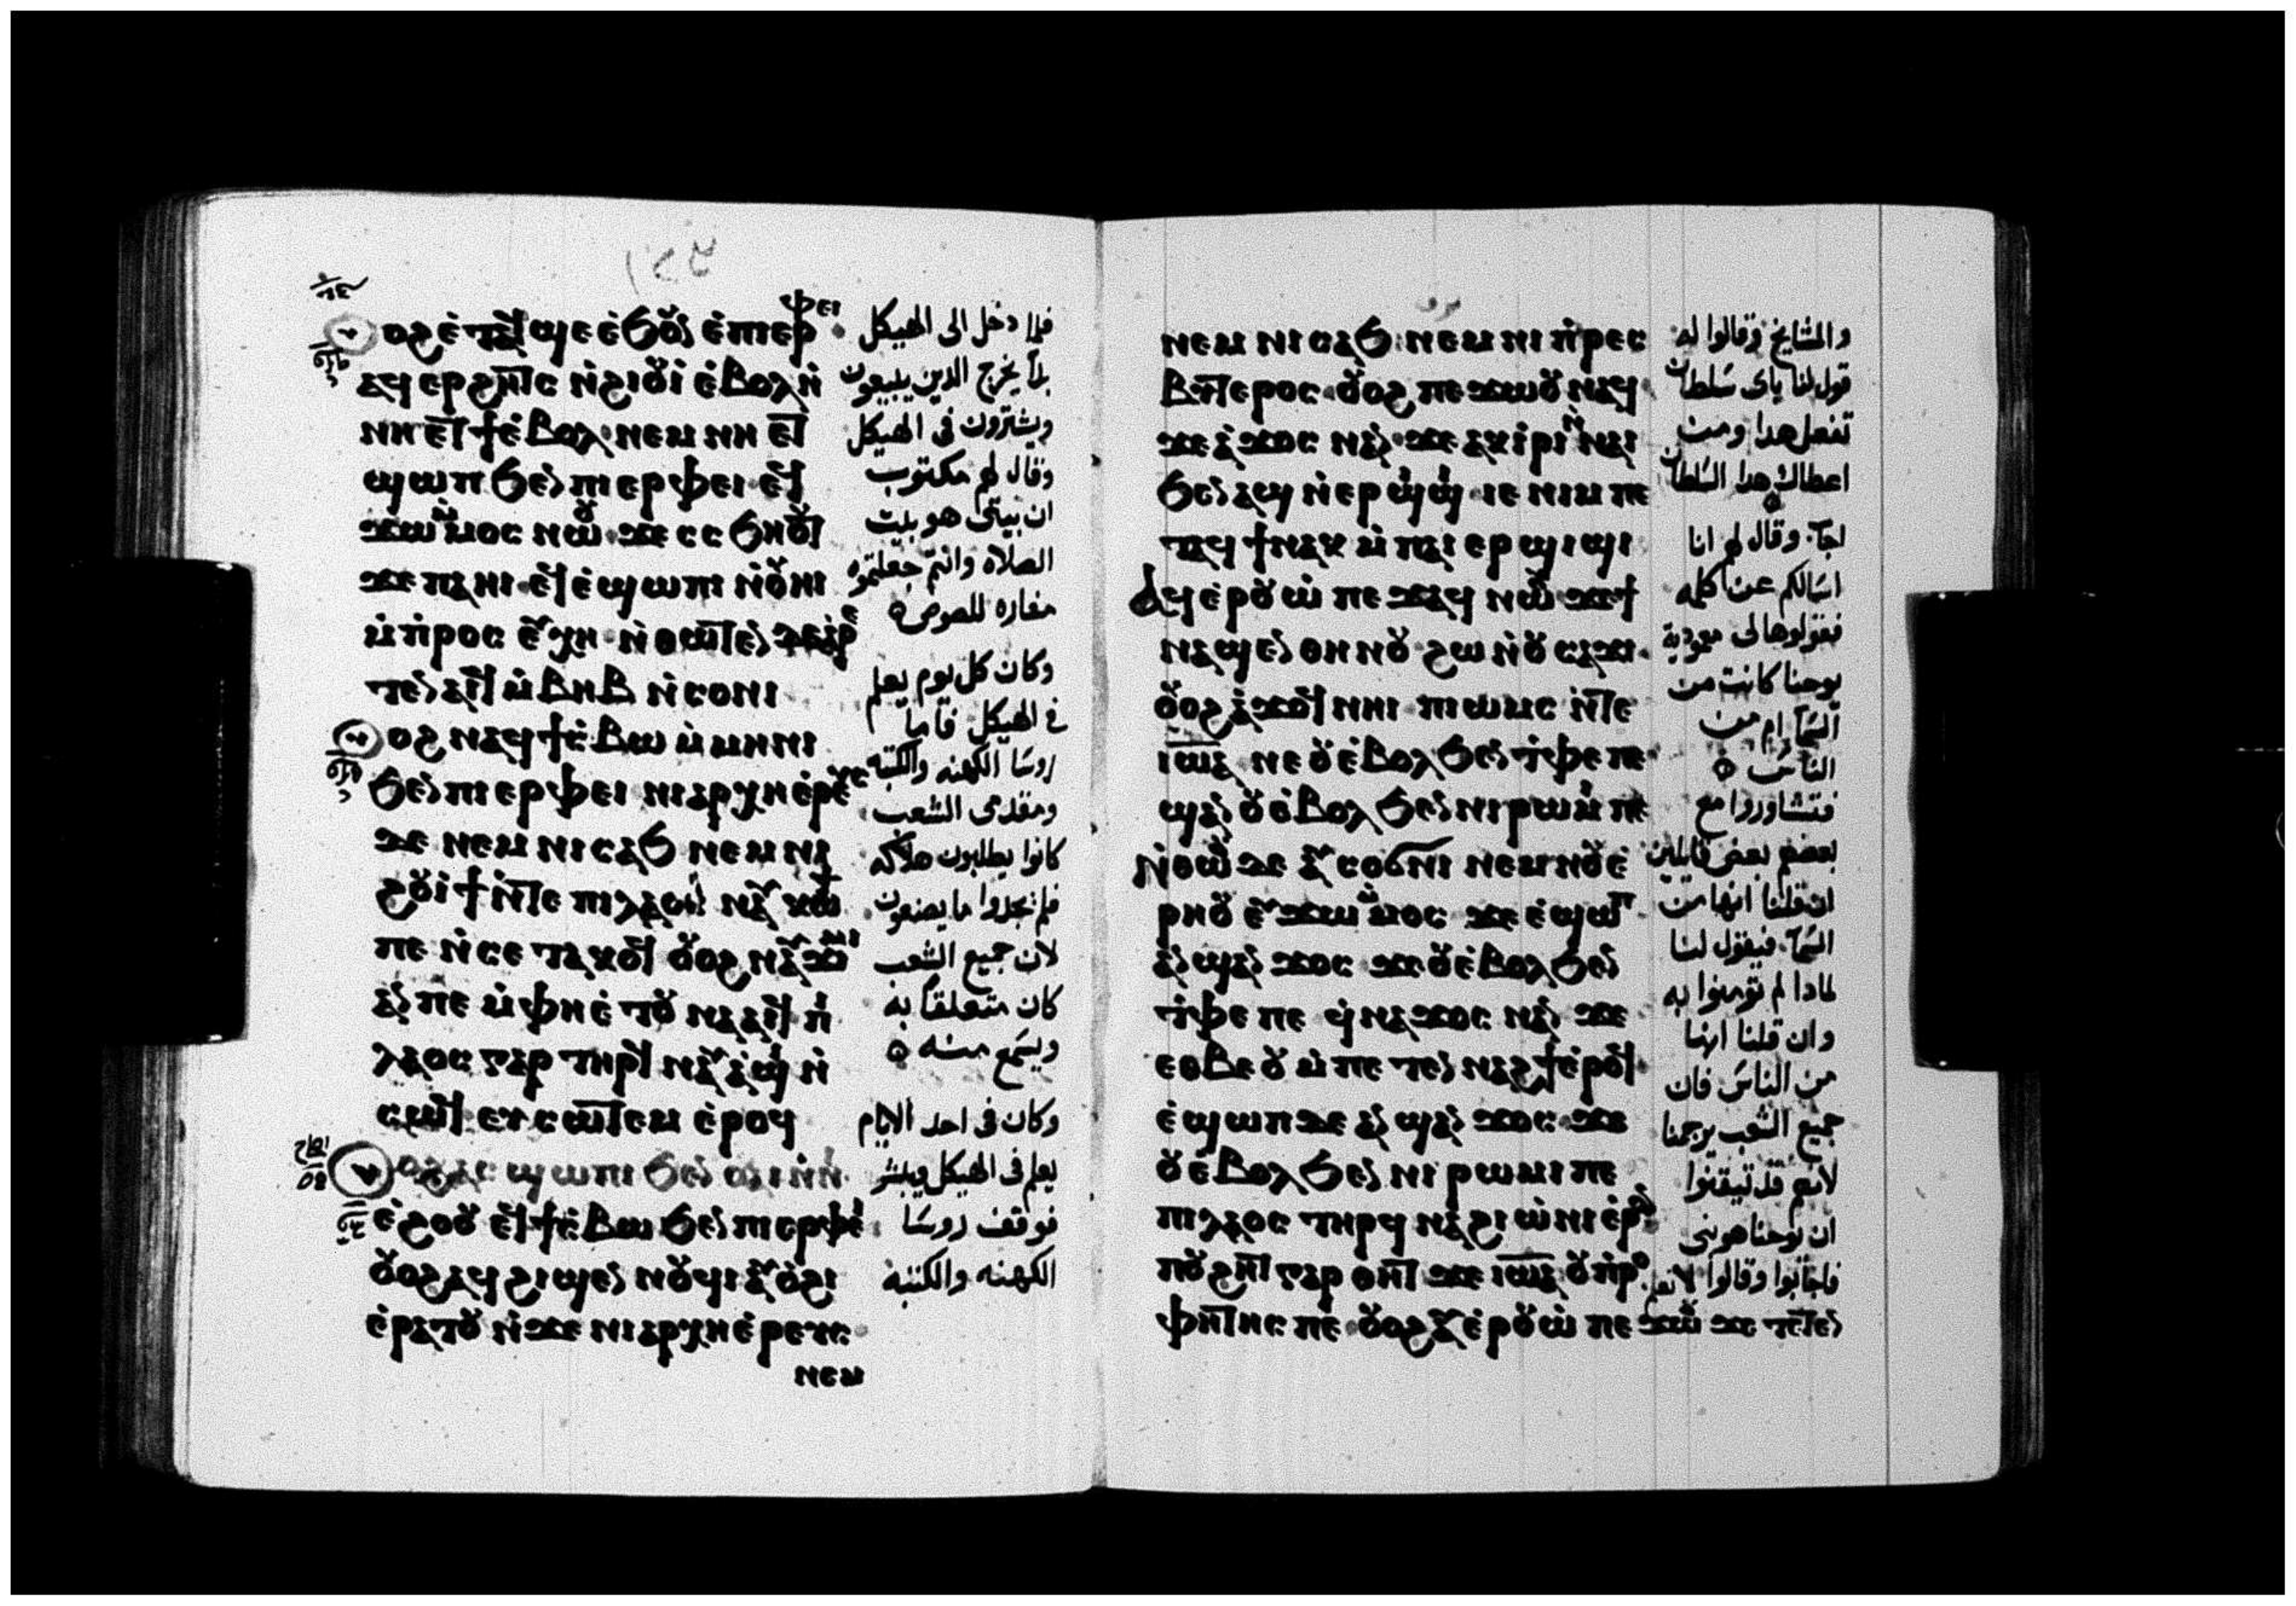 ⲟϩ ⲉ̇ⲧⲁϥ ϣⲉ ⲉ̇ϧⲟⲩⲛ ⲉ̇ⲡⲓⲉⲣⲫⲉⲓ
ⲁϥ ⲉⲣϩⲏⲧⲥ ⲛ̇ϩⲓⲟⲩⲓ̇ ⲉ̇ⲃⲟⲗ ⲛ̇
ⲛⲏ ⲉⲧϯ ⲉ̇ⲃⲟⲗ ⲛⲉⲙ ⲛⲏ ⲉⲧ
ϣⲱⲡ ϧⲉⲛ ⲡⲓⲉⲣⲫⲉⲓ ⲉϥ
ϫⲱ ⲙ̇ⲙⲟⲥ ⲛⲱⲟⲩ ϫⲉ ⲥⲥϧⲏⲟⲩⲧ
ϫⲉ ⲡⲁⲏⲓ ⲉϥⲉ̇ϣⲱⲡⲓ ⲛ̇ⲟⲩⲏⲓ
ⲙ̇ⲡⲣⲟⲥⲉⲩⲭⲏ ⲛ̇ⲑⲱⲧⲉⲛ ⲇⲉ ⲁⲣⲉ
ⲧⲉⲛⲁⲓϥ ⲙ̇ⲃⲏⲃ ⲛ̇ⲥⲟⲛⲓ
ⲟϩ ⲛⲁϥϯⲥ̇ⲃⲱ ⲙ̇ⲙⲏⲛⲓ
ϧⲉⲛ ⲡⲓⲉⲣⲫⲉⲓ ⲛⲓⲁⲣⲭⲏⲉ̇ⲣⲉⲩⲥ
ⲇⲉ ⲛⲉⲙ ⲛⲓⲥⲁϧ ⲛⲉⲙ ⲛⲓ
ϩⲟⲩⲓϯ ⲛ̇ⲧⲉ ⲡⲓⲗⲁⲟⲥ ⲛⲁⲩⲕⲱϯ
ⲡⲉ ⲛ̇ⲥⲉ ⲧⲁⲕⲟϥ ⲟⲩⲟϩ ⲛⲁⲩϫⲓⲙⲓ
ⲁⲛ ⲡⲉ ⲙ̇ⲫⲏⲉ̇ ⲧⲟⲩ ⲛⲁⲁⲓϥ ⲡⲓ
ⲗⲁⲟⲥ ⲅⲁⲣ ⲧⲏⲣϥ ⲛⲁⲩⲁ̇ϣⲓ ⲛ̇
ⲥⲱϥ ⲉⲩⲥⲱⲧⲉⲙ ⲉ̇ⲣⲟϥ
ⲟϩ ⲁⲥ ϣⲱⲡⲓ ϧⲉⲛ ⲟⲩⲁⲓ ⲛ̇ⲛⲓ
ⲉ̇ϩⲟⲟⲩ ⲉϥϯⲥ̇ⲃⲱ ϧⲉⲛ ⲡⲓⲉⲣⲫⲉⲓ
ⲟⲩⲟϩ ⲁϥ ϩⲓϣⲉⲛ ⲛⲟⲩϥⲓ ⲁⲩⲟ̇ϩⲓ
ⲉ̇ⲣⲁⲧⲟⲩ ⲛ̇ϫⲉ ⲛⲓⲁⲣⲭⲏⲉ̇ⲣⲉⲩⲥ
ⲛⲉⲙ
فلما دخل الى الهيكل
بدا يخرج الدين يبيعون
ويشترون فى الهيكل
وقال لهم مكتوب
ان بيتى هو بيت
الصلاه وانتم جعلتموه
مغاره للصوص
وكان كل يوم يعلم
فى الهيكل فاما
روسا الكهنه والكتبه
ومقدمى الشعب
كانوا يطلبون هلاكه
فلم يجدوا ما يصنعون
لان جميع الشعب
كان متعلقا به
ويسمع منه
وكان فى احد الايام
يعلم فى الهيكل ويبشر
فوقف روسا
الكهنه والكتبه
ⲛⲉⲙ ⲛⲓⲥⲁϧ ⲛⲉⲙ ⲛⲓ ⲡ̇ⲣⲉⲥ
ⲃⲏⲧⲉⲣⲟⲥ ⲟⲩⲟϩ ⲡⲉϫⲱⲟⲩ ⲛⲁϥ
ϫⲉ ⲁ̇ϫⲟⲥ ⲛⲁⲛ ϫⲉ ⲁⲕⲓ̇ⲣⲓ ⲛ̇ⲛⲁⲓ
ϧⲉⲛ ⲁϣ ⲛ̇ⲉⲣϣⲓϣⲓ ⲓⲉ ⲛⲓⲙ ⲡⲉ
ⲧⲁϥϯ ⲛⲁⲕ ⲙ̇ⲡⲁⲓ ⲉⲣϣⲓϣⲓ
ⲁϥⲉ̇ⲣⲟⲩⲱ̇ ⲡⲉϫⲁϥ ⲛⲱⲟⲩ ϫⲉ ϯ
ⲛⲁϣⲉⲛ ⲑⲏⲛⲟⲩ ϩⲱ ⲛ̇ⲟⲩⲥⲁϫⲓ
ⲟⲩⲟϩ ⲁ̇ϫⲟϥ ⲛⲏⲓ ⲡⲓⲱⲙⲥ ⲛ̇ⲧⲉ
ⲓⲱⲁ ⲛⲉ ⲟⲩⲉ̇ⲃⲟⲗ ϧⲉⲛ ⲧ̇ⲫⲉ ⲡⲉ
ϣⲁⲛ ⲟⲩⲉ̇ⲃⲟⲗ ϧⲉⲛ ⲛⲓⲣⲱⲙⲓ ⲡⲉ
ⲛ̇ⲑⲱⲟⲩ ⲇⲉ ⲁⲩⲥⲟϭⲛⲓ ⲛⲉⲙ ⲛⲟⲩⲉ̇
ⲣⲏⲟⲩ ⲉⲩϫⲱ ⲙ̇ⲙⲟⲥ ϫⲉ ⲉ̇ϣⲱⲡ
ⲁⲛϣⲁⲛ ϫⲟⲥ ϫⲉ ⲟⲩⲉ̇ⲃⲟⲗ ϧⲉⲛ
ⲧ̇ⲫⲉ ⲡⲉ ϥ̇ⲛⲁϫⲟⲥ ⲛⲁⲛ ϫⲉ
ⲉⲑⲃⲉ ⲟⲩ ⲙ̇ⲡⲉ ⲧⲉⲛ ⲛⲁϩϯ ⲉ̇ⲣⲟϥ
ⲉ̇ϣⲱⲡ ⲇⲉ ⲁⲛ ϣⲁⲛ ϫⲟⲥ ϫⲉ
ⲟⲩⲉ̇ⲃⲟⲗ ϧⲉⲛ ⲛⲓ ⲣⲱⲙⲓ ⲡⲉ
ⲡⲓⲗⲁⲟⲥ ⲧⲏⲣϥ ⲛⲁϩⲓⲱ̇ⲛⲓ ⲉ̇ⲣⲟⲛ
ⲡⲟⲩϩⲏⲧ ⲅⲁⲣ ⲑⲏⲧ ϫⲉ ⲓⲱⲁ ⲟⲩⲡ̇ⲣⲟ
ⲫⲏⲧⲏⲥ ⲡⲉ ⲟⲩⲟϩ ⲁⲩⲉ̇ⲣⲟⲩⲱ̇ ⲡⲉϫⲱⲟⲩ ϫⲉ ⲧⲉⲧⲉⲛ
والمشايخ وقالوا له
قول لنا باى سلطان
تفعل هدا ومن
اعطاك هدا السلطان
اجاب وقال لهم انا
اسالكم عن كلمه
فقولوها لى معمودية
يوحنا كانت من
السما ام من
الناس
فتشاوروا مع
بعضهم بعض قايلين
ان قلنا انها من
السما فيقول لنا
لمادا لم تؤمنوا به
وان قلنا انها
من الناس فان
جميع الشعب يرجمنا
لانهم قد تيقنوا
ان يوحنا هو نبى
فاجابوا وقالوا لا نعلم